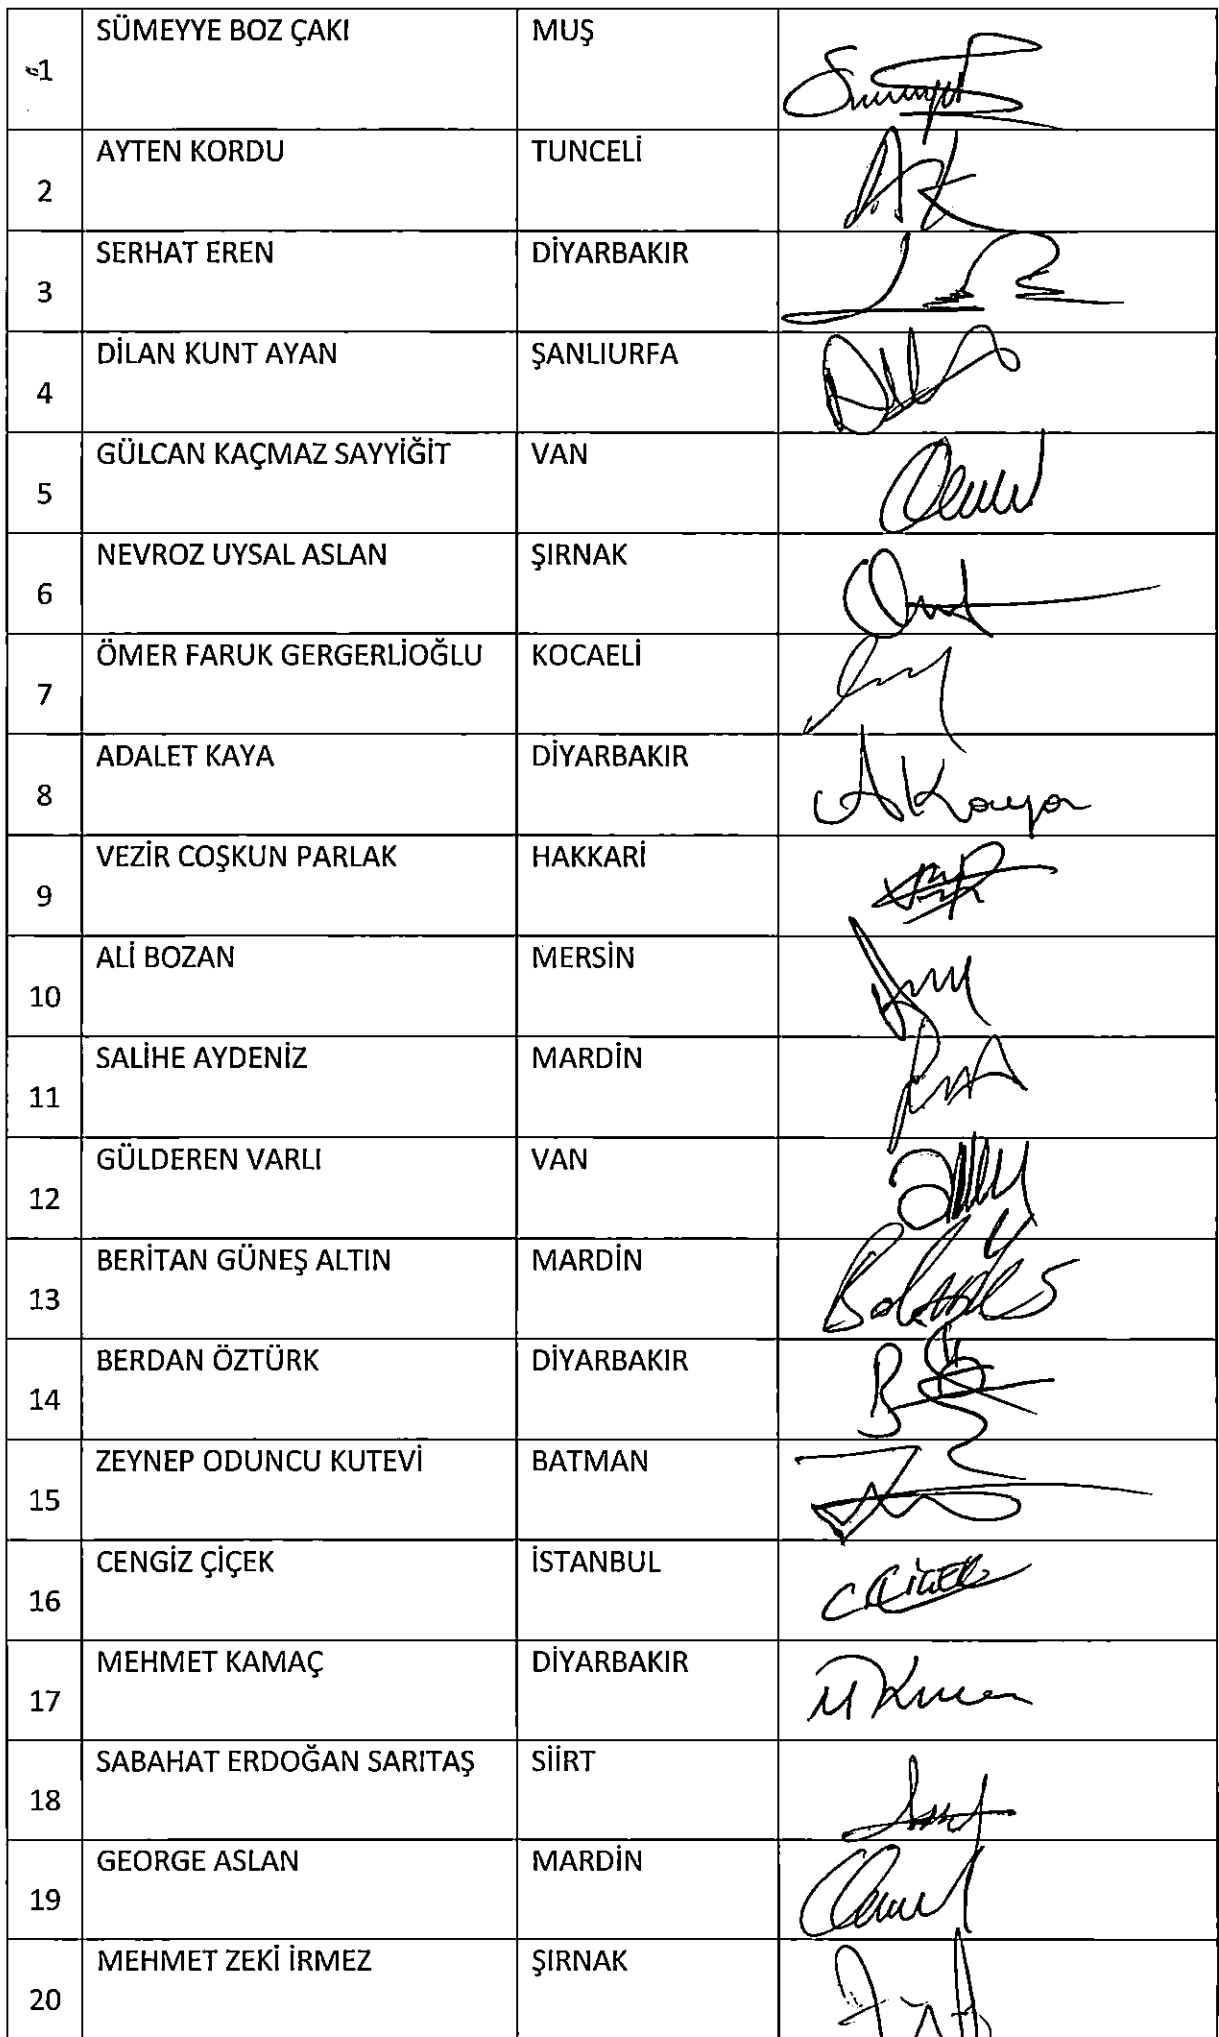 1 SÜMEYYE BOZ ÇAKI MUŞ
2 AYTEN KORDU TUNCELİ
3 SERHAT EREN DİYARBAKIR
4 DİLAN KUNT AYAN ŞANLIURFA
5 GÜLCAN KAÇMAZ SAYYİĞİT VAN
6 NEVROZ UYSAL ASLAN ŞIRNAK
7 ÖMER FARUK GERGERLİOĞLU KOCAELİ
8 ADALET KAYA DİYARBAKIR AKaya
9 VEZİR COŞKUN PARLAK HAKKARİ
10 ALİ BOZAN MERSİN
11 SALİHE AYDENİZ MARDİN
12 GÜLDEREN VARLI VAN
13 BERİTAN GÜNEŞ ALTIN MARDİN
14 BERDAN ÖZTÜRK DİYARBAKIR
15 ZEYNEP ODUNCU KUTEVİ BATMAN
16 CENGİZ ÇİÇEK İSTANBUL
17 MEHMET KAMAÇ DİYARBAKIR
18 SABAHAT ERDOĞAN SARITAŞ SİİRT
19 GEORGE ASLAN MARDİN
20 MEHMET ZEKİ İRMEZ ŞIRNAK